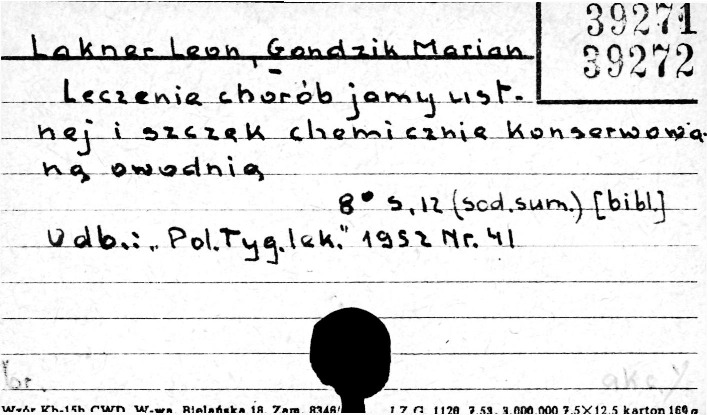 39271
39272
Lakner Leon, Gondzik Marian
Leczenie chorób jamy ust-
nej i szczęk chemicznie konserwowa-
ną owodnią
8° s. 12 (scd. sum.) [bibl.]
Odb.: "Pol. Tyg. lek." 1952 Nr. 41
br.
akc
Wzór Kb-15b CWD, W-wa, Bielańska 18. Zam. 8346/ LZG. 1120 7.53. 3.000.000 7.5×12.5 karton 160 g